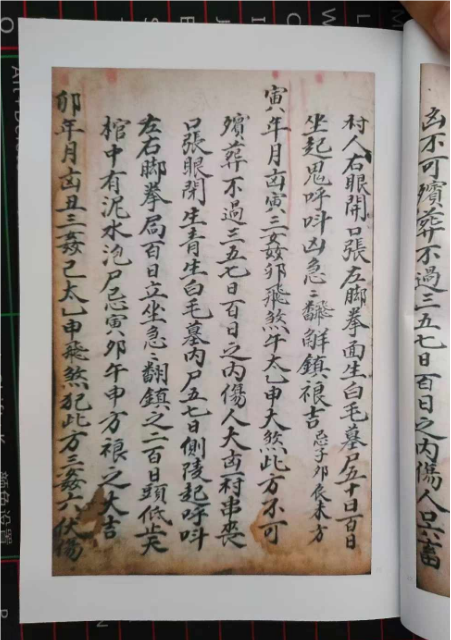 凶不可殯葬不過三五七日百日之内傷人口六畜
村人右眼開口張左脚拳面生白毛墓尸五十日百日
坐起鬼呼叫凶急〻翻觧鎮裉吉忌子卯辰未方
寅年月凶寅三姦卯飛煞午太乙申大煞此方不可
殯葬不過三五七日百日之内傷人大凶村串喪
口張眼閉生青生白毛墓内尸五七日側陵起呼叫
左右脚拳局百日立坐急〻翻鎮之二百日頭低
棺中有泥水泡尸忌寅卯午申方裉之大吉
卯年月凶丑三姦己太乙申飛煞犯此方三姦六伏傷